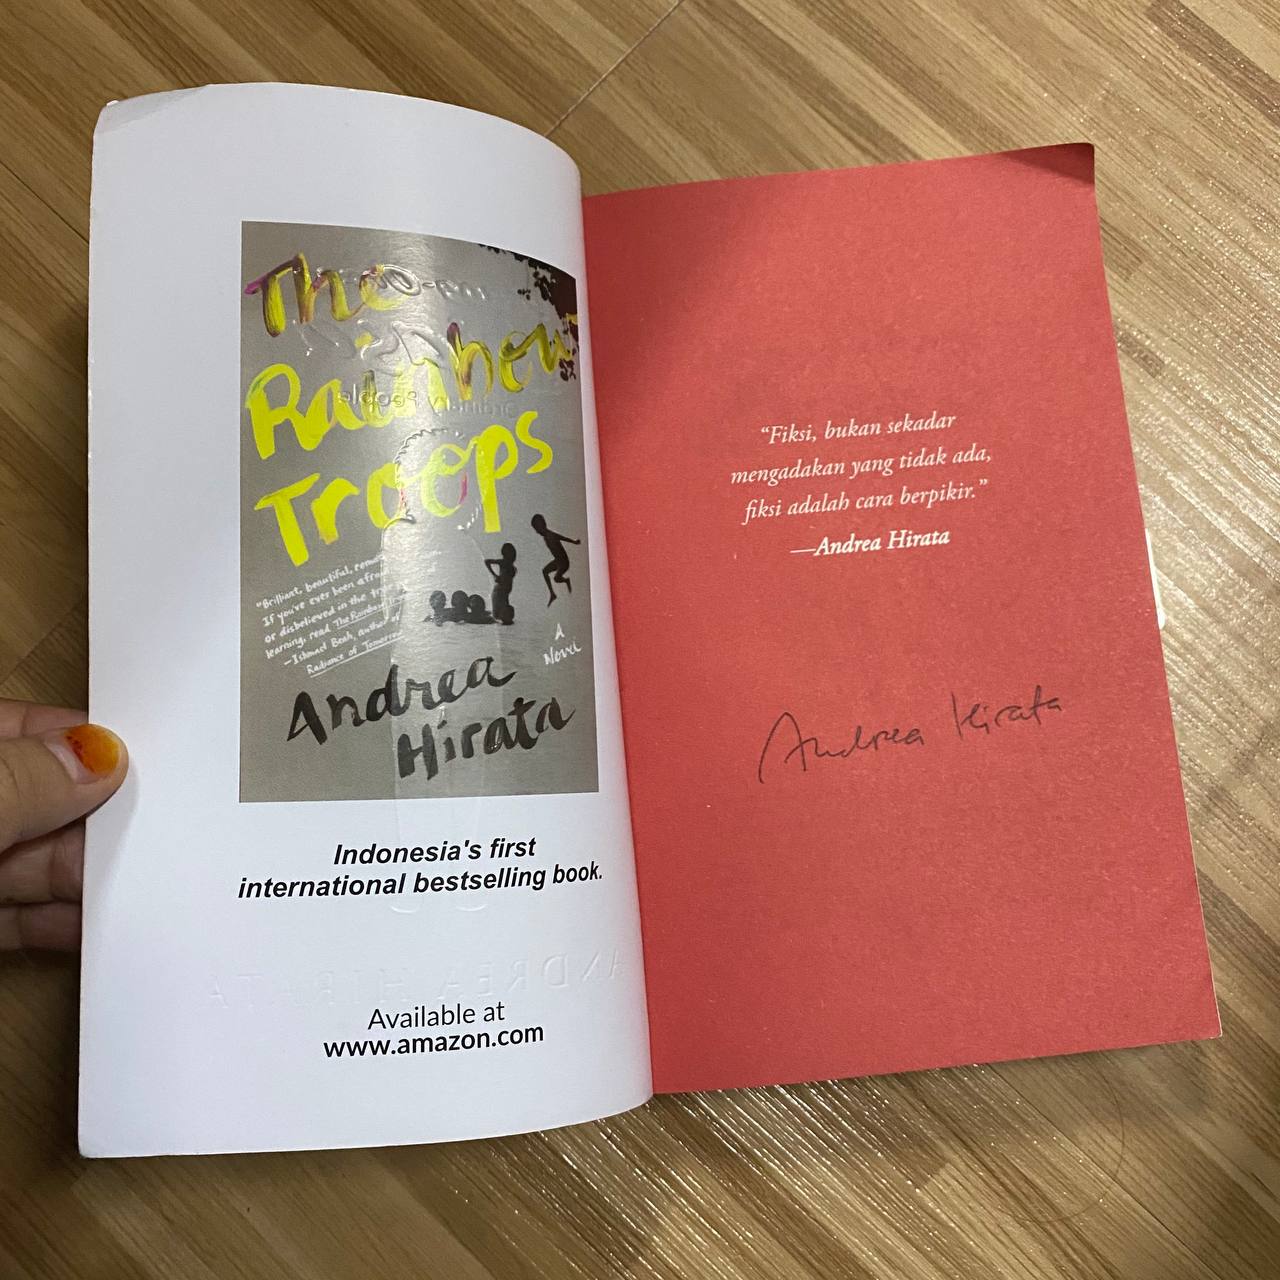 The
Rainbow
Troops
"Brilliant, beautiful,
If you've ever been
or disbelieved in the
learning, read The Rainbow
—Ishmael Beah, author of
Radiance of Tomorrow
A
Novel
Andrea
Hirata
Indonesia's first
international bestselling book.
ANDREA HIRATA
Available at
www.amazon.com
“Fiksi, bukan sekadar
mengadakan yang tidak ada,
fiksi adalah cara berpikir.”
—Andrea Hirata
Andrea Hirata